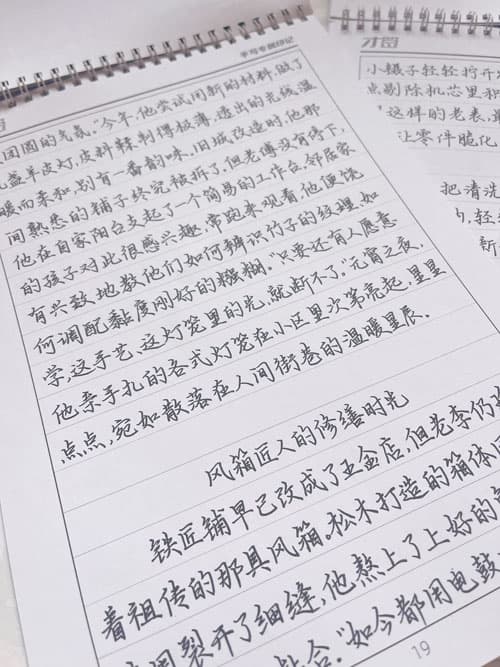 手写专属印记
团圆的气氛。"今年,他尝试用新的材料,做了
几盏羊皮灯,皮料鞣制得极薄,透出的光线温
暖而柔和,别有一番韵味。旧城改造时,他那
间熟悉的铺子终究被拆了,但老傅没有停下,
他在自家阳台支起了一个简易的工作台。邻居家
的孩子对此很感兴趣,常跑来观看,他便饶
有兴致地教他们如何辨识竹子的纹理,如
何调配黏度刚好的糨糊。"只要还有人愿意
学,这手艺,这灯笼里的光,就断不了。"元宵之夜,
他亲手扎的各式灯笼在小区里次第亮起,星星
点点,宛如散落在人间街巷的温暖星辰。
风箱匠人的修缮时光
铁匠铺早已改成了五金店,但老李仍
着祖传的那具风箱。松木打造的箱体
裂开了细缝,他熬上了上好的
合。"如今都用电鼓
19
小镊子轻轻拧开
点剔除机芯里积
这样的老表,单
让零件脆化
把清洗
内,轻
新